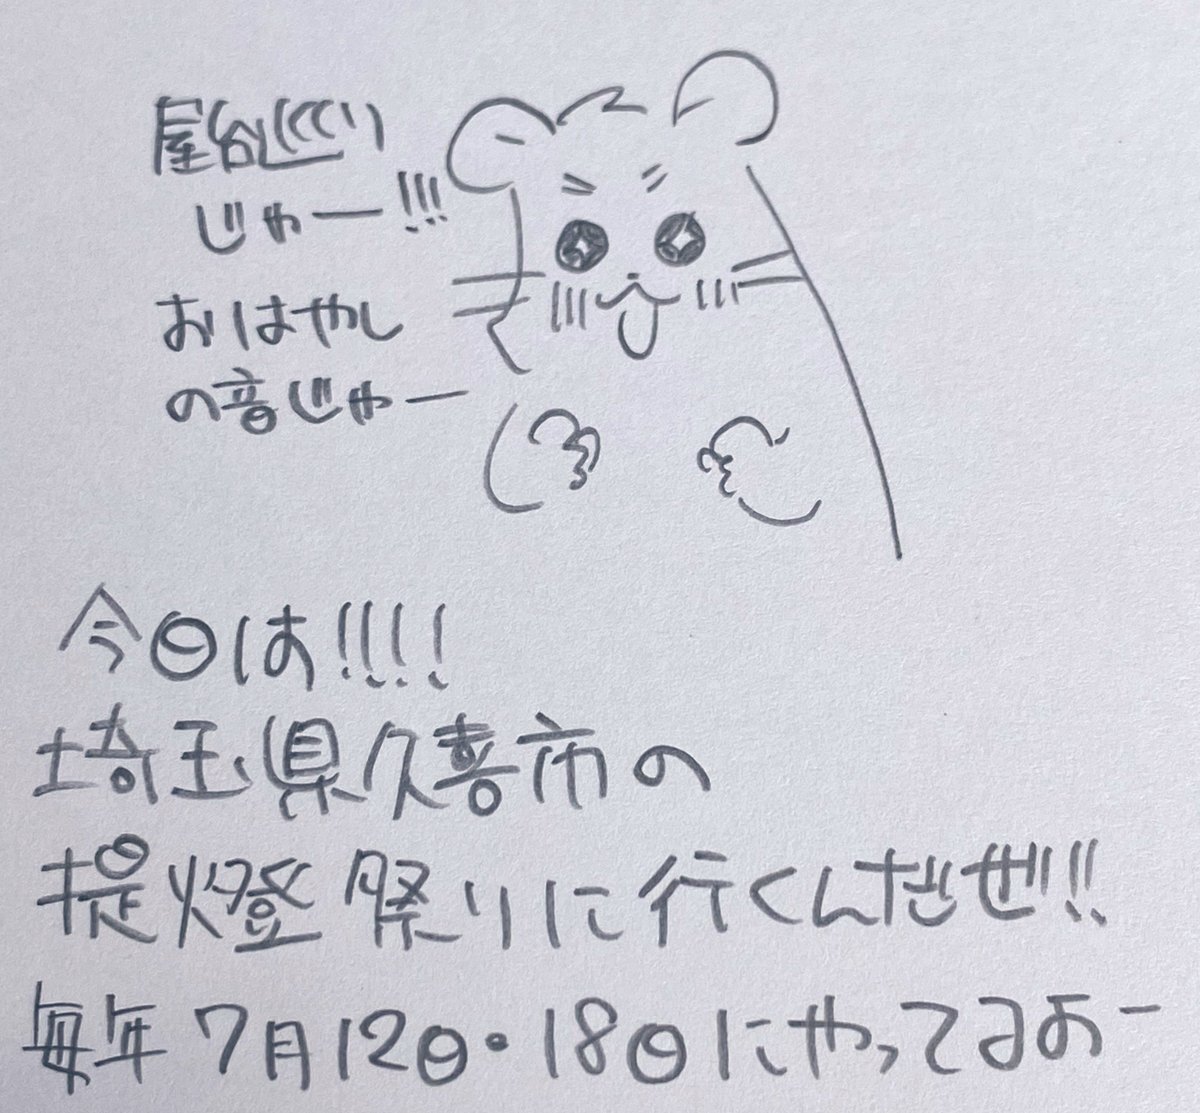 屋台巡り
じゃー!!!
おはやし
の音じゃー
今日は!!!!
埼玉県久喜市の
提燈祭りに行くんだぜ!!
毎年7月12日・18日にやってるよー